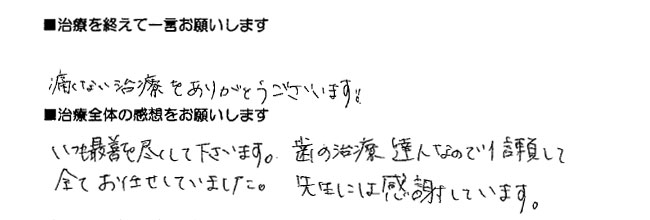 ■治療を終えて一言お願いします
痛くない治療をありがとうございます!!
■治療全体の感想をお願いします
いつも最善を尽くして下さいます。歯の治療達人なので信頼して
全てお任せしていました。先生には感謝しています。